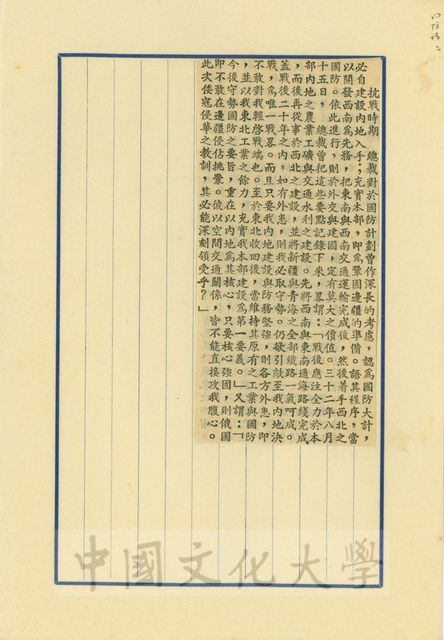 抗戰時期　總裁對於國防計劃曾作深長的考慮，認為國防大計，
必自建設內地入手；充實本部，即為鞏固邊疆的準備。語其程序，當
以開發西南為先務，把東南與西南交通運輸完成後，然後著手西北之
國防。依此進行，則於外交與建國，定有莫大之價值。三十二年八月
十五日，總裁曾把這些要點記錄下來，畧謂：「戰後應注全力於本
部內地之農業工礦與交通水利之建設。先將西南與東南通海路綫完成
，而後再從事於西北之建設，並將新疆與青海之全部鐵路一氣呵成。
蓋戰後二十年之內，如有外患，則我必取守勢。仍欲引敵至我內地決
戰，為唯一戰畧。而且只要我內地建設與防務堅強，則各方外患，即
不敢對我輕啓戰端也。至於東北收回後，當維持其原有之工業與國防
，並以我東北工業之餘力，充實我本部建設為第一要義。」又謂：「
今後守勢國防之要旨，重在以內地為其核心，只要核心強固，則俄國
即不敢在邊疆侵佔挑釁。彼以空間交通關係，皆不能直接攻我腹心。
此次倭寇侵華之教訓，其必能深刻領受乎？」
中國文化大學